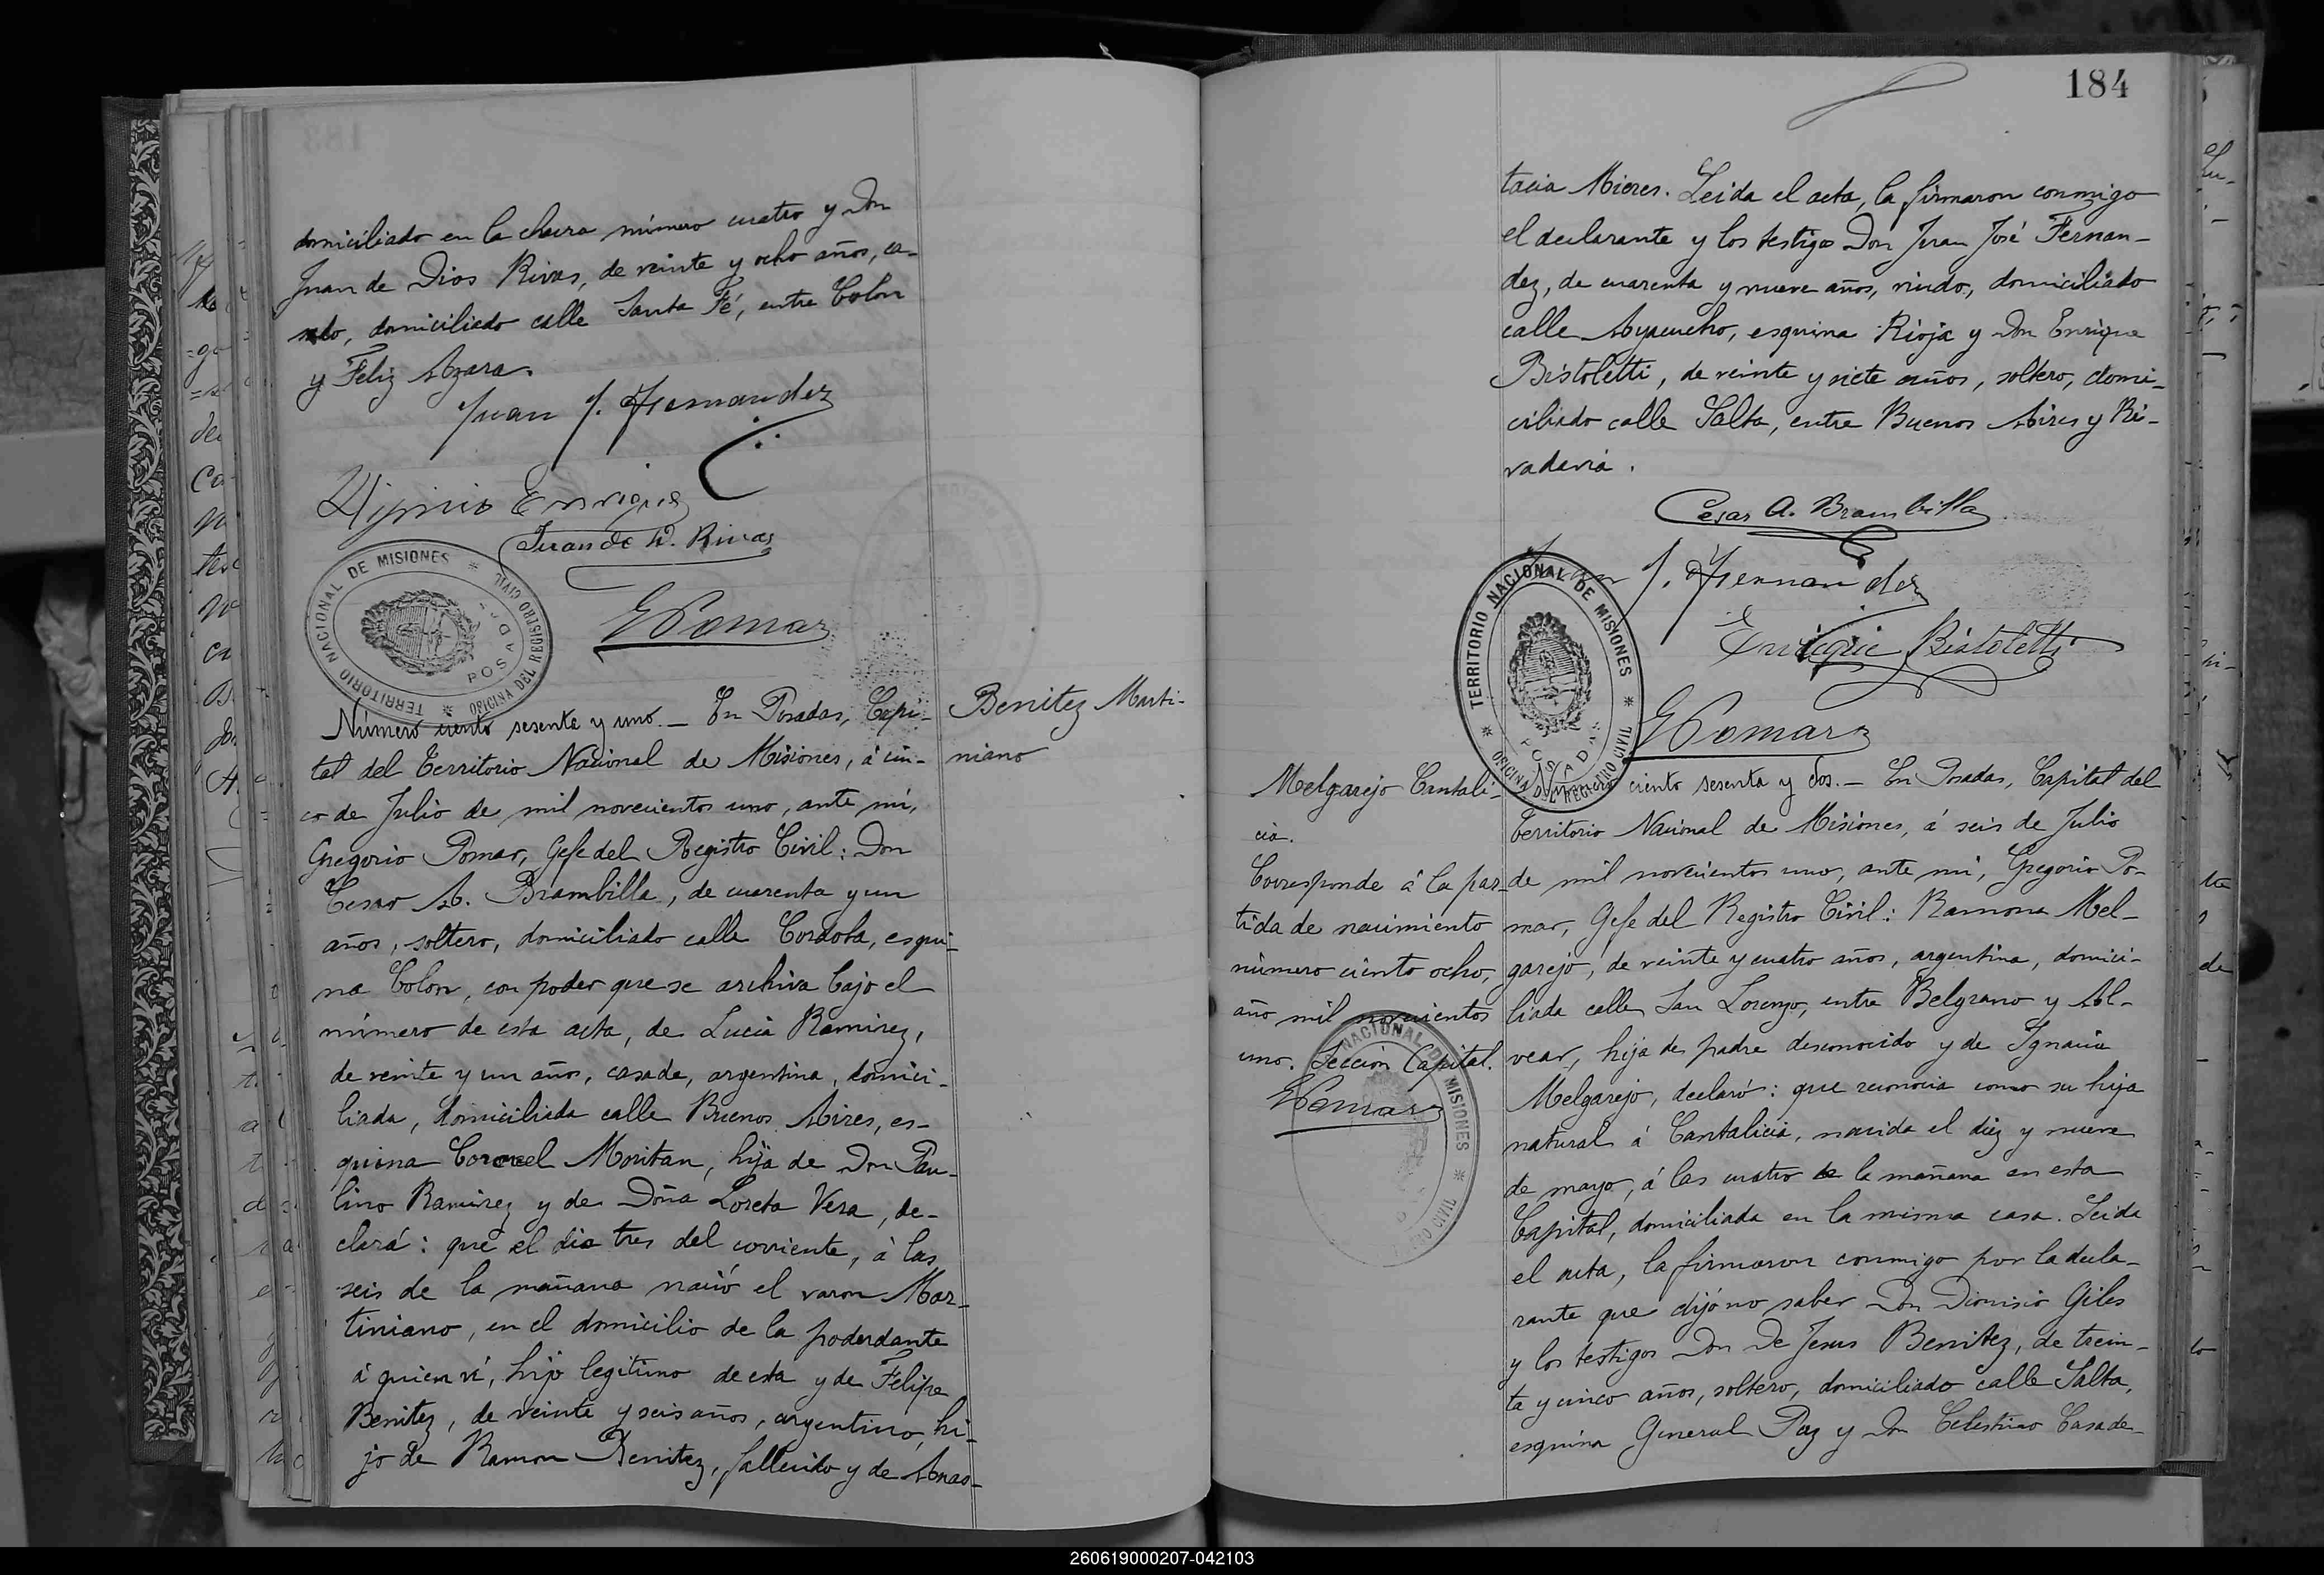 domiciliado en la chacra número cuatro y Don
Juan de Dios Rivas, de veinte y ocho años, ca-
sado, domiciliado calle Santa Fé, entre Colon
y Feliz Azara.
Juan J. Fernandez
Higinio Enrique
Juan de D. Rivas
TERRITORIO NACIONAL DE MISIONES * OFICINA DEL REGISTRO CIVIL * POSADAS
GPomar
Número ciento sesenta y uno. _ En Posadas, Capi-
tal del Territorio Nacional de Misiones, á cin-
co de Julio de mil novecientos uno, ante mí,
Gregorio Pomar, Gefe del Registro Civil: Don
Cesar A. Brambilla, de cuarenta y un
años, soltero, domiciliado calle Cordoba, esqui-
na Colon, con poder que se archiva bajo el
número de esta acta, de Lucia Ramirez,
de veinte y un años, casada, argentina, domici-
liada, domiciliada calle Buenos Aires, es-
quina Coronel Moritan, hija de Don Pau-
lino Ramirez y de Doña Loreta Vera, de-
clará: que el dia tres del corriente, á las
seis de la mañana nació el varon Mar-
tiniano, en el domicilio de la poderdante
á quien ví, hijo legitimo de esta y de Felipe
Benitez, de veinte y seis años, argentino, hi-
jo de Ramon Benitez, fallecido y de Anas-
Benitez Marti-
niano
184
tacia Mieres. Leida el acta, la firmaron conmigo
el declarante y los testigos Don Juan José Fernan-
dez, de cuarenta y nueve años, viudo, domiciliado
calle Ayacucho, esquina Rioja y Don Enrique
Bistoletti, de veinte y siete años, soltero, domi-
ciliado calle Salta, entre Buenos Aires y Ri-
vadavia.
Cesar A. Brambilla
Juan J. Fernandez
Enrique Bistoletti
TERRITORIO NACIONAL DE MISIONES * OFICINA DEL REGISTRO CIVIL * POSADAS
GPomar
Melgarejo Cantali-
cia.
Corresponde á la par-
tida de nacimiento
número ciento ocho,
año mil novecientos
uno. Seccion Capital.
GPomar
NACIONAL DE MISIONES * CIVIL
Número ciento sesenta y dos. _ En Posadas, Capital del
Territorio Nacional de Misiones, á seis de Julio
de mil novecientos uno, ante mi, Gregorio Po-
mar, Gefe del Registro Civil: Ramona Mel-
garejo, de veinte y cuatro años, argentina, domici-
liada calle San Lorenzo, entre Belgrano y Al-
vear, hija de padre desconocido y de Ignacia
Melgarejo, declaró: que reconocia como su hija
natural á Cantalicia, nacida el diez y nueve
de mayo, á las cuatro de la mañana en esta
Capital, domiciliada en la misma casa. Leida
el acta, la firmaron conmigo por la decla-
rante que dijó no saber Don Dionisio Giles
y los testigos Don De Jesus Benitez, de trein-
ta y cinco años, soltero, domiciliado calle Salta,
esquina General Paz y Don Celestino Casade-
260619000207-042103